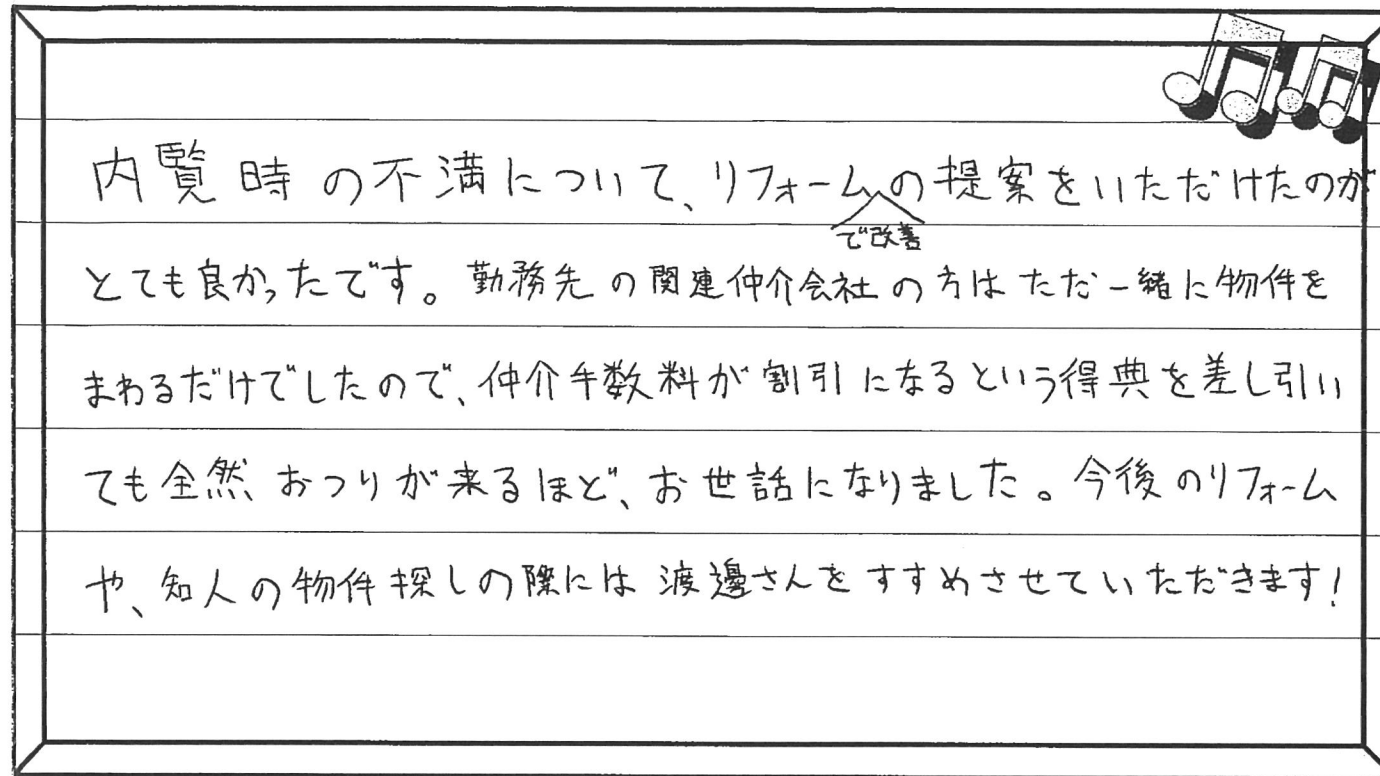 内覧時の不満について、リフォームで改善の提案をいただけたのが
とても良かったです。勤務先の関連仲介会社の方はただ一緒に物件を
まわるだけでしたので、仲介手数料が割引になるという得典を差し引い
ても全然、おつりが来るほど、お世話になりました。今後のリフォーム
や、知人の物件探しの際には渡邊さんをすすめさせていただきます!